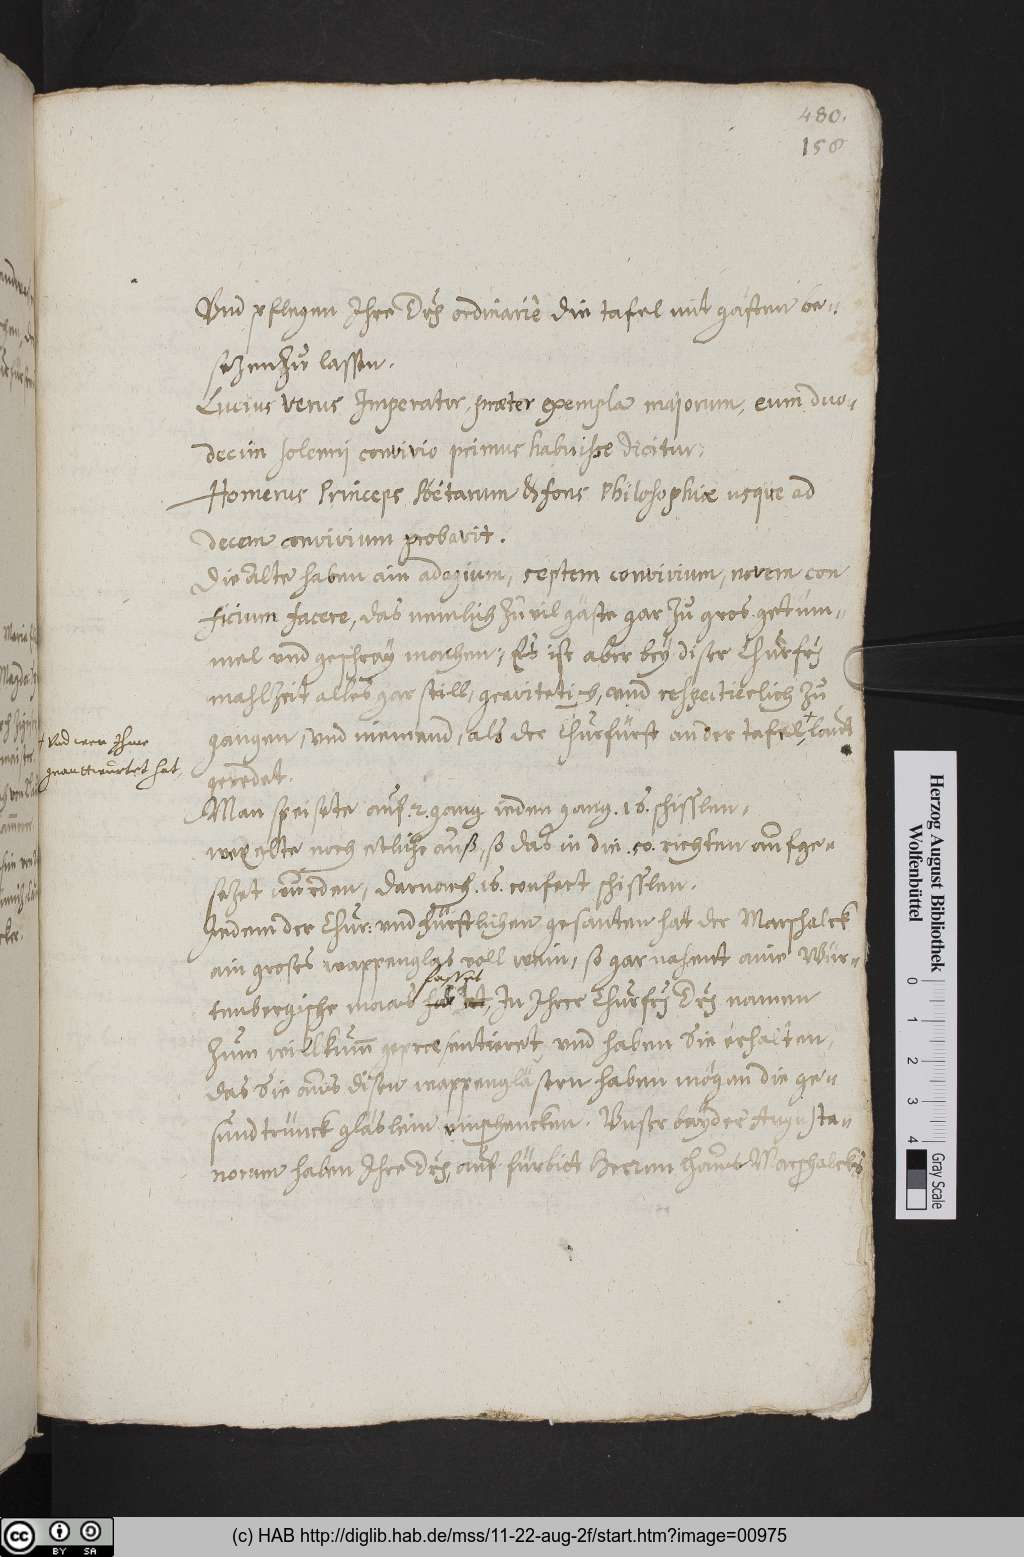 480.
158
Vnd pflegen Ihre Drl: ordinariè die tafel mit gästen be-
sezen zů lassen.
Lucius Verus Imperator, præter exempla majorum, eum duo-
decim solemnj convivio primus habuisse dicitur,
Homerus Princeps Poëtarum & fons Philosophiæ usque ad
decem convivium probavit.
Die Alte haben ain adagium, septem convivium, novem con
ficium facere, das nemlich zů vil gäste gar zů gros getům-
mel vnd geschray machen; Es ist aber bey diser Churfrl:
mahlzeit alles gar still, gravitetisch, vnd respectierlich zů
gangen, vnd niemand, als der Churfürst an der tafel, + laudt
geredet.
+ Vnd wer Ihme
geantwürtet hat,
Man speisete auf .2. gang ieden gang .18. schisslen,
wexelte noch etliche auß, so das in die .50. richten aufge-
sezet wurden, darnach .18. confect schisslen.
Iedem der Chur: vnd fürstlichen gesanten hat der Marschalck
ain groses wappenglas voll wein, so gar nahent aine Wür-
tenbergische maas fasset, In Ihrer Churfrl: Drl: namen
zum willkumm præsentieret, vnd haben Sie erhalten,
das Sie aus disen wappengläsern haben mögen die ge-
sundtrunck gläslein einschencken. Vnser bayder Augusta-
norum haben Ihre Drl: auf fürbitt Herren Haubt Marschalcks
Herzog August Bibliothek
Wolfenbüttel
0 1 2 3 4
Gray Scale
cc BY SA
(c) HAB http://diglib.hab.de/mss/11-22-aug-2f/start.htm?image=00975